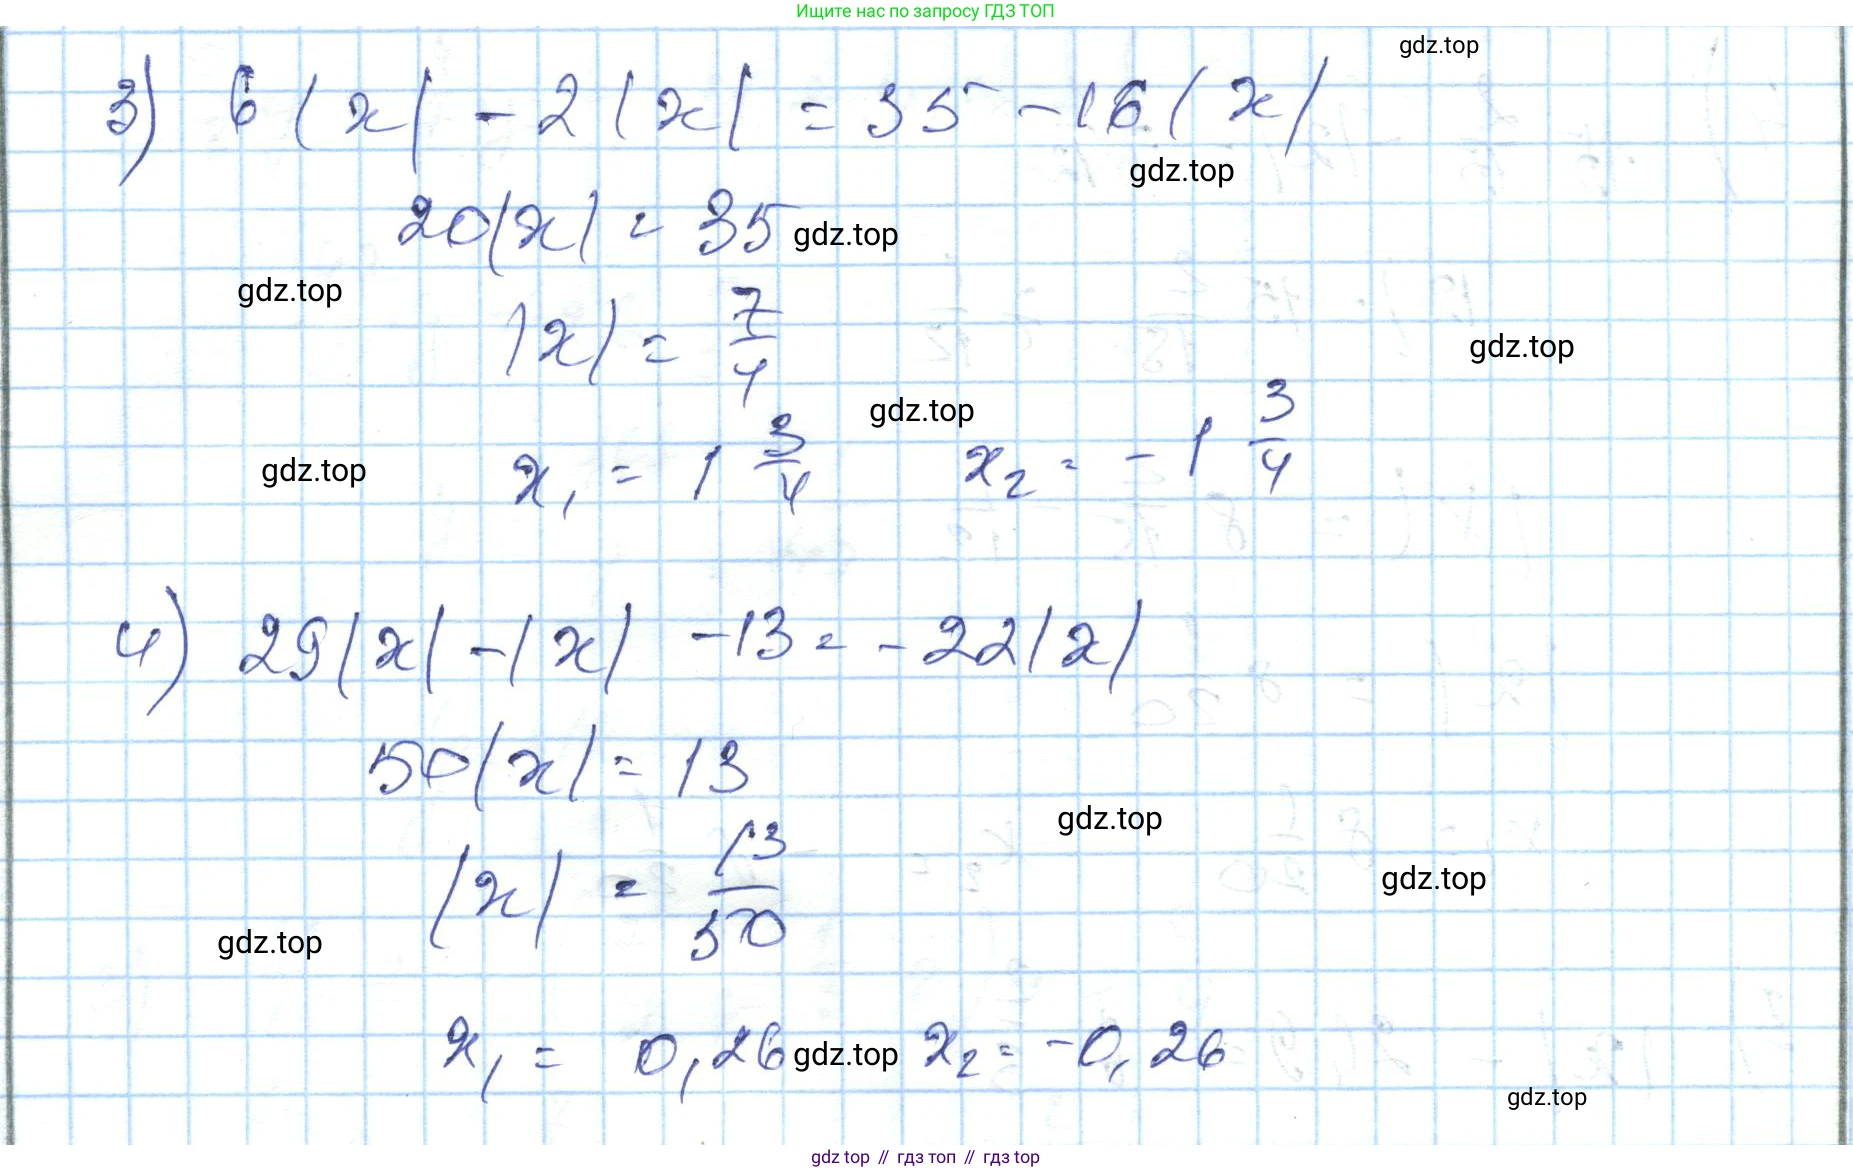 Ищите нас по запросу ГДЗ ТОП
gdz.top
3) 6|x| - 2|x| = 35 - 16|x|
gdz.top
20|x| = 35 gdz.top
gdz.top
|x| = 7/4
gdz.top
gdz.top
gdz.top
x₁ = 1 3/4 x₂ = -1 3/4
4) 29|x| - |x| - 13 = -22|x|
50|x| = 13
gdz.top
|x| = 13/50
gdz.top
gdz.top
x₁ = 0,26 gdz.top x₂ = -0,26
gdz.top
gdz.top // гдз топ // гдз top